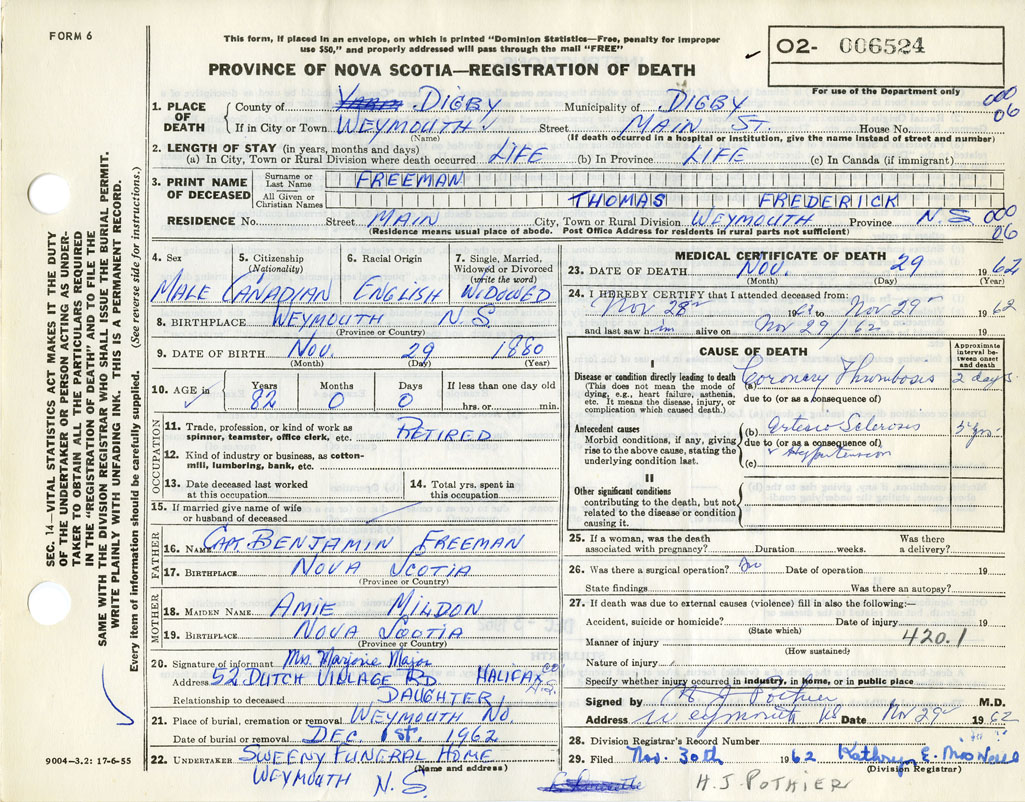 FORM 6
This form, if placed in an envelope, on which is printed "Dominion Statistics—Free, penalty for improper
use $50," and properly addressed will pass through the mail "FREE"
PROVINCE OF NOVA SCOTIA—REGISTRATION OF DEATH
02- 006524
For use of the Department only
000
06
1. PLACE OF DEATH
County of DIGBY Municipality of DIGBY
If in City or Town WEYMOUTH Street MAIN ST. House No.
(Name) (If death occurred in a hospital or institution, give the name instead of street and number)
2. LENGTH OF STAY (in years, months and days)
(a) In City, Town or Rural Division where death occurred LIFE (b) In Province LIFE (c) In Canada (if immigrant)
3. PRINT NAME OF DECEASED
Surname or Last Name FREEMAN
All Given or Christian Names THOMAS FREDERICK
RESIDENCE No. Street MAIN City, Town or Rural Division WEYMOUTH Province N.S 000
06
(Residence means usual place of abode. Post Office Address for residents in rural parts not sufficient)
4. Sex 5. Citizenship (Nationality) 6. Racial Origin 7. Single, Married, Widowed or Divorced (write the word)
MALE CANADIAN ENGLISH WIDOWED
8. BIRTHPLACE WEYMOUTH N.S.
(Province or Country)
9. DATE OF BIRTH NOV. 29 1880
(Month) (Day) (Year)
10. AGE in Years Months Days If less than one day old
82 0 0 hrs. or min.
OCCUPATION
11. Trade, profession, or kind of work as spinner, teamster, office clerk, etc. RETIRED
12. Kind of industry or business, as cotton-mill, lumbering, bank, etc.
13. Date deceased last worked at this occupation
14. Total yrs. spent in this occupation
15. If married give name of wife or husband of deceased
FATHER
16. NAME CAPT. BENJAMIN FREEMAN
17. BIRTHPLACE NOVA SCOTIA
(Province or Country)
MOTHER
18. MAIDEN NAME AMIE MILDON
19. BIRTHPLACE NOVA SCOTIA
(Province or Country)
20. Signature of informant Mrs. Marjorie Major
Address 52 DUTCH VILLAGE RD HALIFAX CO N.S.
Relationship to deceased DAUGHTER
21. Place of burial, cremation or removal WEYMOUTH NO.
Date of burial or removal DEC 1st. 1962
22. UNDERTAKER SWEENY FUNERAL HOME
(Name and address)
WEYMOUTH N.S.
MEDICAL CERTIFICATE OF DEATH
23. DATE OF DEATH NOV. 29 1962
(Month) (Day) (Year)
24. I HEREBY CERTIFY that I attended deceased from:
Nov 28th 19 to Nov 29th 1962
and last saw him alive on Nov 29/62 19
CAUSE OF DEATH
Approximate interval between onset and death
I
Disease or condition directly leading to death (a) Coronary Thrombosis 2 days
(This does not mean the mode of dying, e.g., heart failure, asthenia, etc. It means the disease, injury, or complication which caused death.)
due to (or as a consequence of)
Antecedent causes (b) Arterio Sclerosis 5 yrs.
Morbid conditions, if any, giving rise to the above cause, stating the underlying condition last.
due to (or as a consequence of)
Hypertension
(c)
II
Other significant conditions
contributing to the death, but not related to the disease or condition causing it.
25. If a woman, was the death associated with pregnancy? Duration weeks. Was there a delivery?
26. Was there a surgical operation? No Date of operation 19
State findings Was there an autopsy?
27. If death was due to external causes (violence) fill in also the following:—
Accident, suicide or homicide? Date of injury 19
(State which)
Manner of injury 420.1
(How sustained)
Nature of injury
Specify whether injury occurred in industry, in home, or in public place
Signed by H J Pothier M.D.
Address Weymouth NS Date Nov 29th 1962
28. Division Registrar's Record Number
29. Filed Nov. 30th 1962 Kathryn E.
(Division Registrar)
H. J. POTHIER
SEC. 14—VITAL STATISTICS ACT MAKES IT THE DUTY
OF THE UNDERTAKER OR PERSON ACTING AS UNDER-
TAKER TO OBTAIN ALL THE PARTICULARS REQUIRED
IN THE "REGISTRATION OF DEATH" AND TO FILE THE
SAME WITH THE DIVISION REGISTRAR WHO SHALL ISSUE THE BURIAL PERMIT.
WRITE PLAINLY WITH UNFADING INK. THIS IS A PERMANENT RECORD.
Every item of information should be carefully supplied. (See reverse side for instructions.)
9004—3.2: 17-6-55